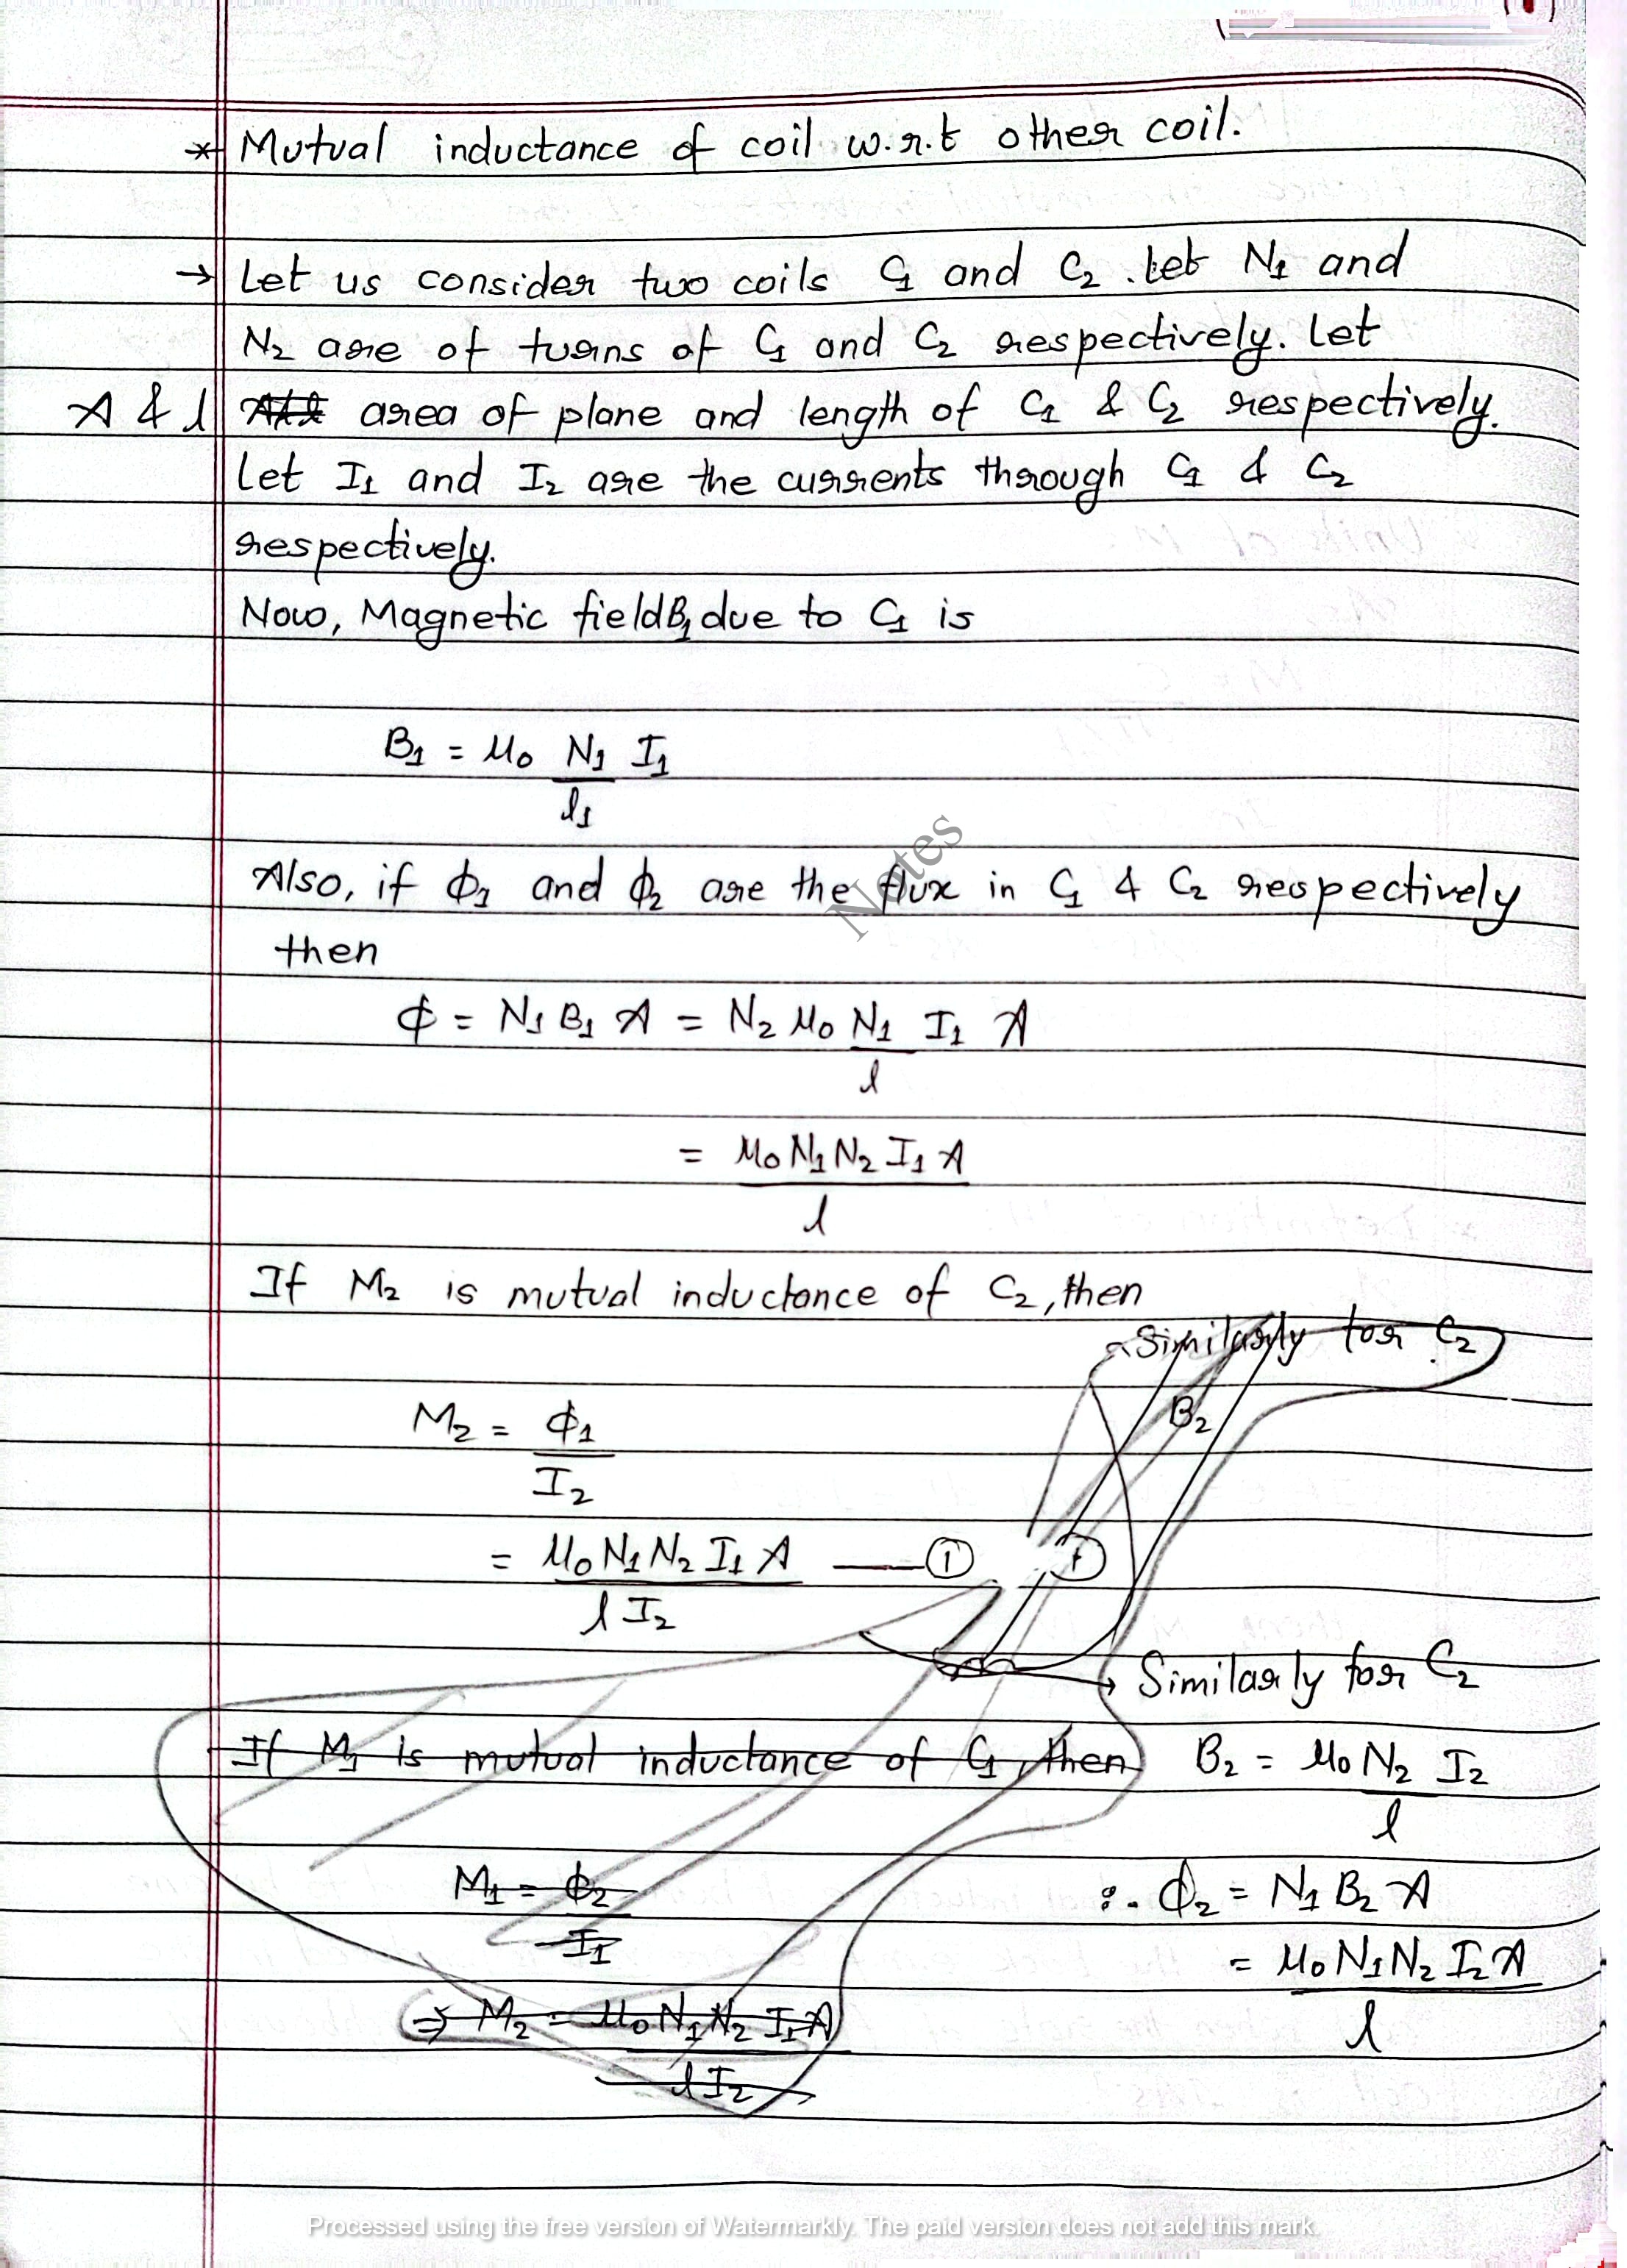 * Mutual inductance of coil w.r.t other coil.
→ Let us consider two coils C1 and C2. Let N1 and
N2 are of turns of C1 and C2 respectively. Let
A & l area of plane and length of C1 & C2 respectively.
Let I1 and I2 are the currents through C1 & C2
respectively.
Now, Magnetic field B1 due to C1 is
B1 = μ0 N1 I1
l1
Also, if Φ1 and Φ2 are the flux in C1 & C2 respectively
then
Notes
Φ = N1 B1 A = N2 μ0 N1 I1 A
l
= μ0 N1 N2 I1 A
l
If M2 is mutual inductance of C2, then
Similarly for C2
B2
M2 = Φ1
I2
= μ0 N1 N2 I1 A —— ①
l I2
→ Similarly for C2
If M1 is mutual inductance of C1, then
B2 = μ0 N2 I2
l
M1 = Φ2
I1
∴ Φ2 = N1 B2 A
= μ0 N1 N2 I2 A
l
⇒ M2 = μ0 N1 N2 I1 A
l I2
Processed using the free version of Watermarkly. The paid version does not add this mark.